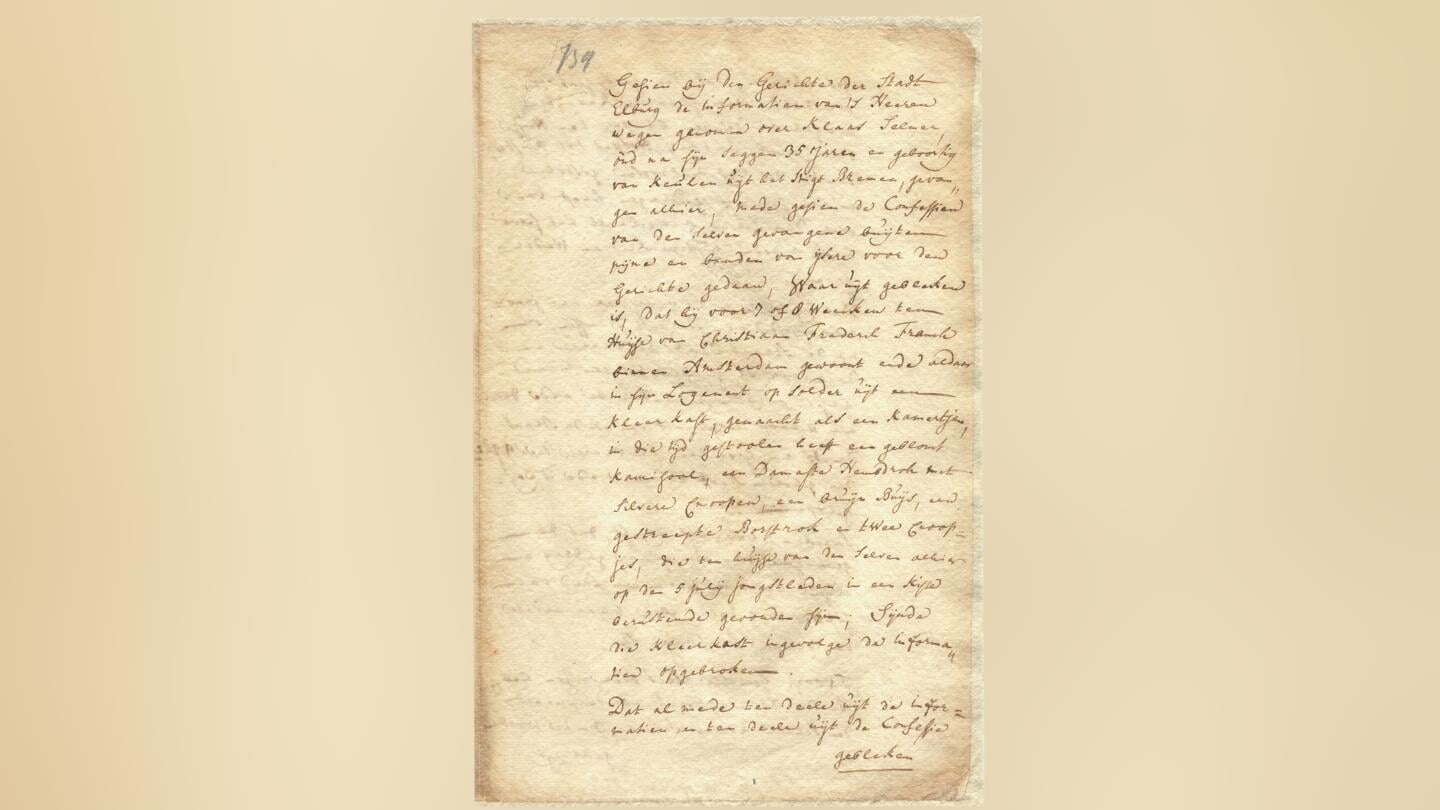 739
Gesien bij den Gerichte der Stadt
Elburg de informatien van 's Heeren
wegen genomen over Klaas Selmer,
oud na sijn seggen 35 Jaren en geboortig
van Keulen uijt het Stigt Bremen, gevan„
gen alhier, mede gesien de Confessien
van den selven gevangene buijten
pijne en banden van ijsere voor den
Gerichte gedaan, Waar uijt gebleeken
is, Dat hij voor 7 of 8 Weeken ten
Huijse van Christiaan Frederik Franck
binnen Amsterdam gewoont ende aldaar
in sijn Logement op solder uijt een
Kleer kast, gemaackt als een Kamertjen,
in die tijd gestoolen heeft een geblomt
Kamisool, een Damaste Hemdrok met
Silvere Cnoopen, een bruijn Buijs, een
gestreepte Borstrok en twee Cnoop=
jes, die ten huijse van den selven alhier
op den 5 julij jongstleden in een Kiste
berustende gevonden sijn; Sijnde
die Kleerkast ingevolge de informa„
tien opgebroken.
Dat al mede ten deele uijt de infor=
matien en ten deele uijt de Confessie
gebleken